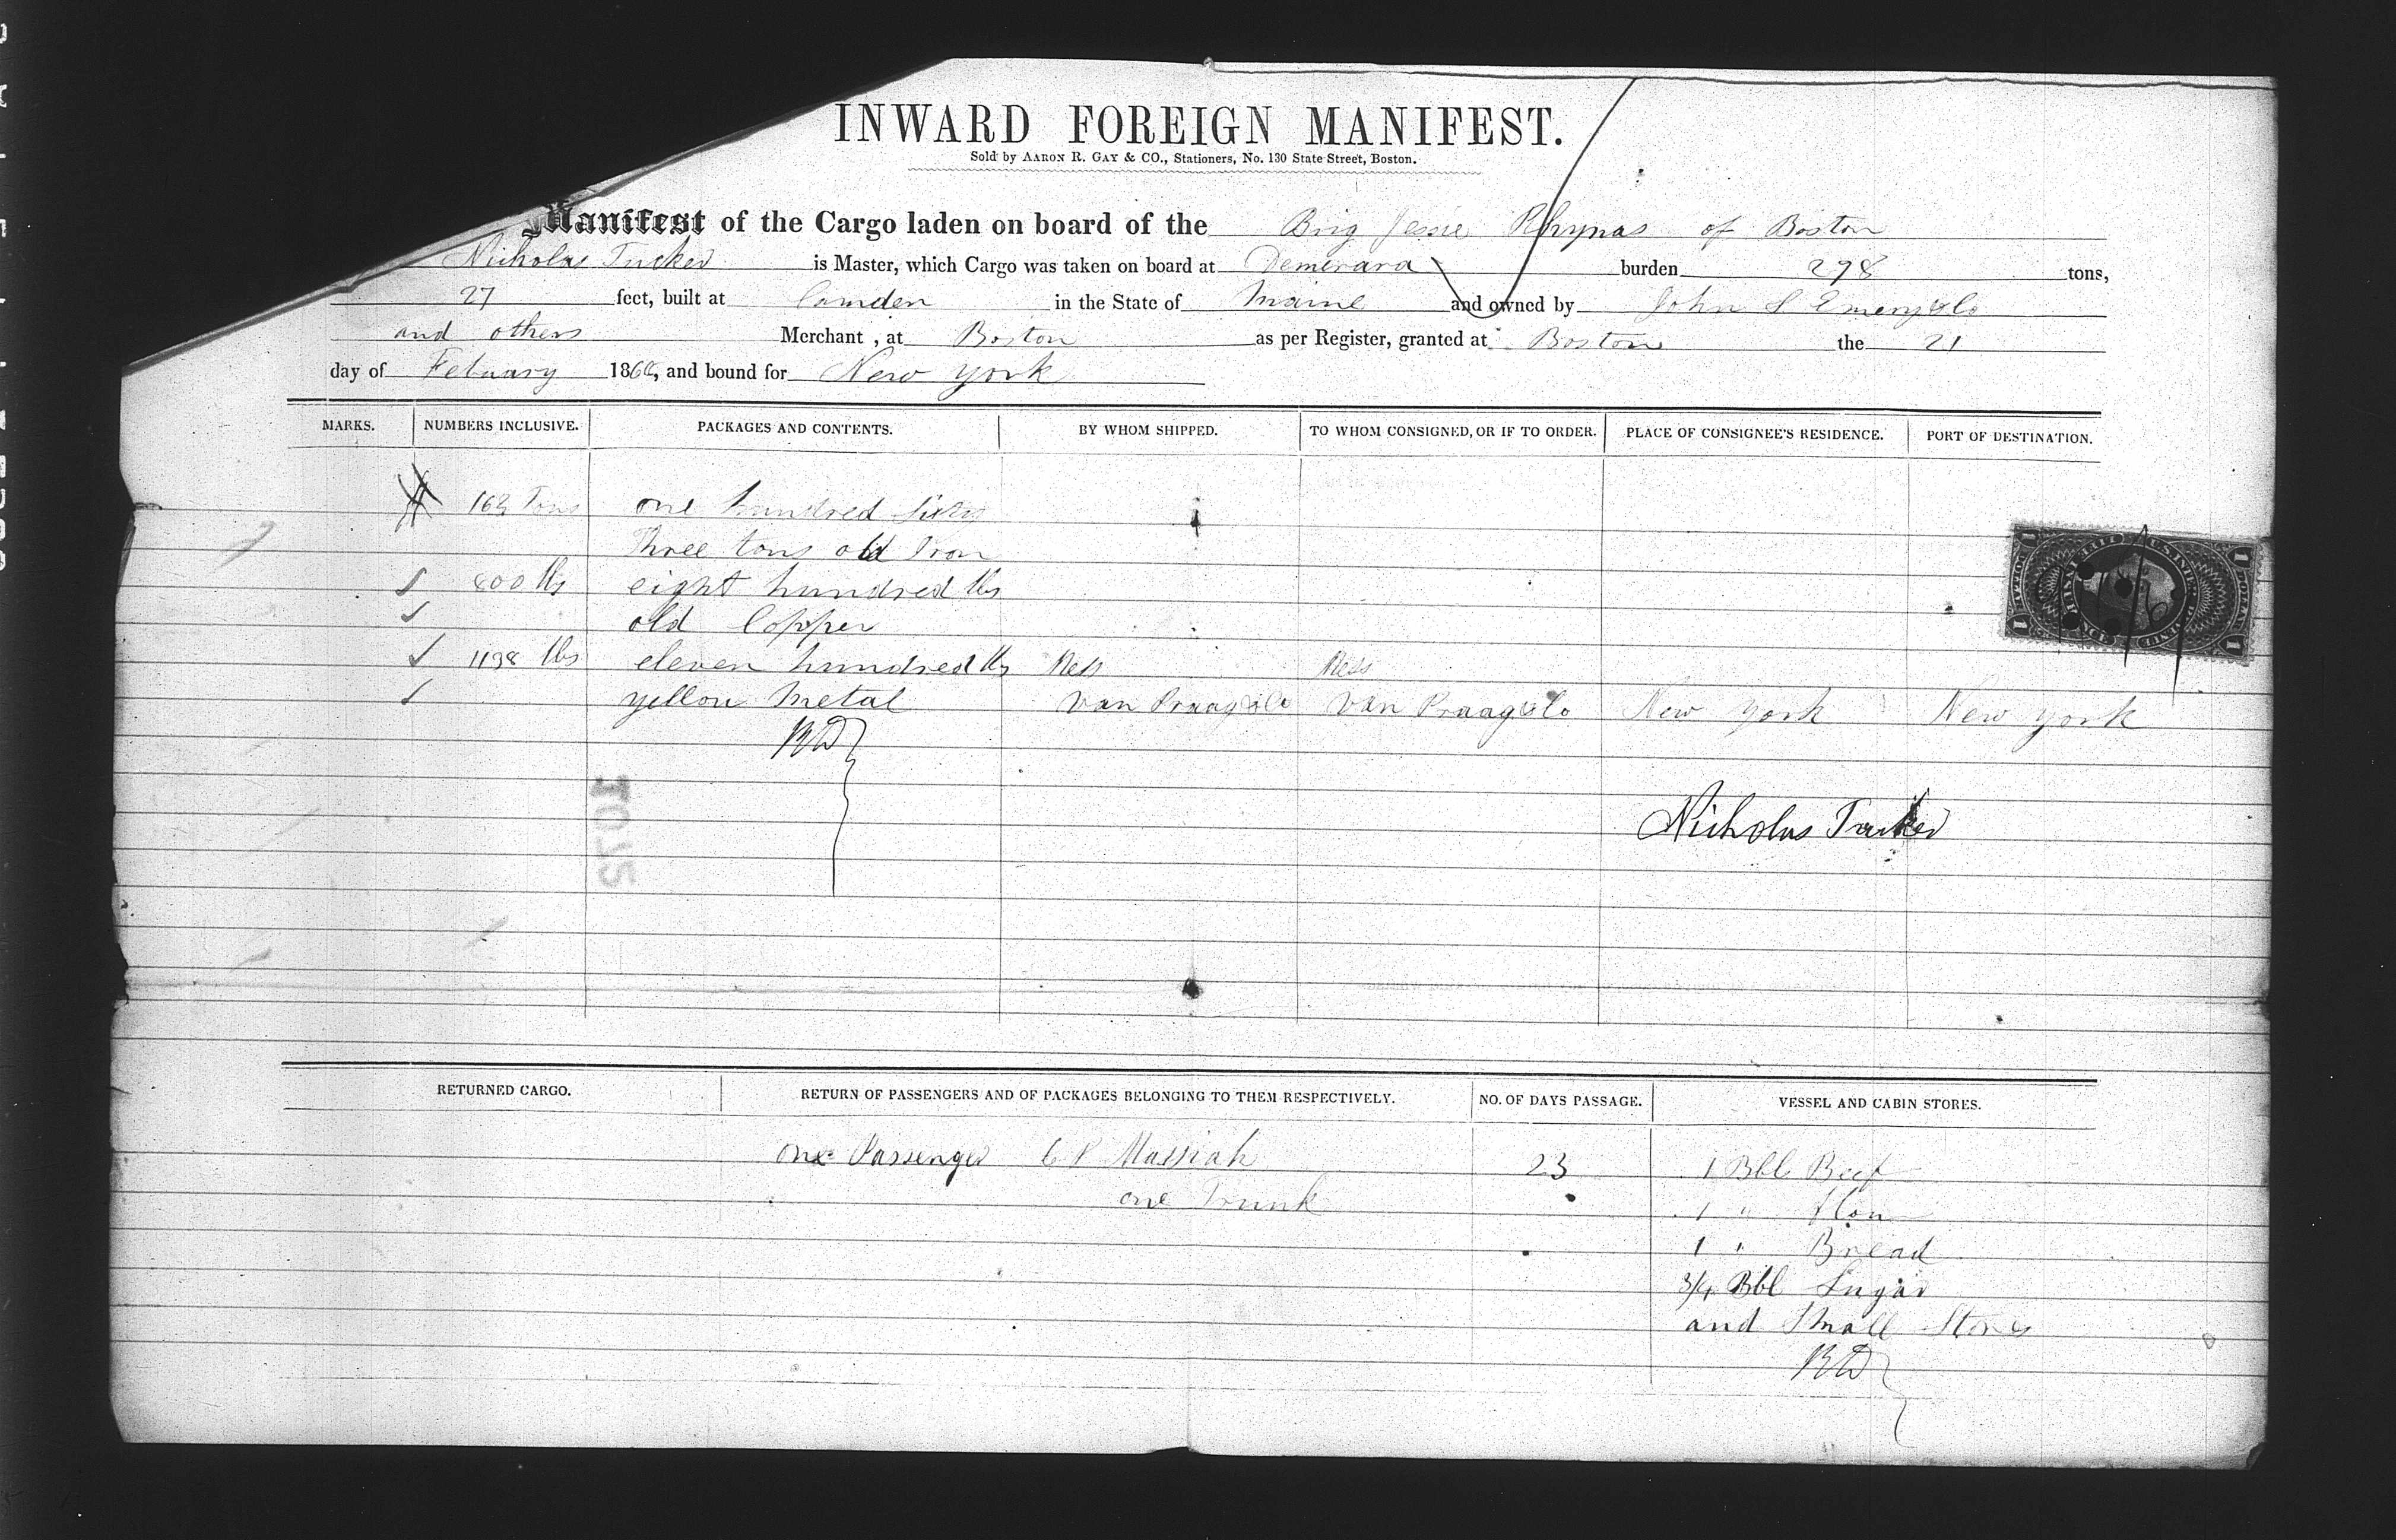 INWARD FOREIGN MANIFEST.
Sold by AARON R. GAY & CO., Stationers, No. 130 State Street, Boston.
Manifest of the Cargo laden on board of the Brig Jessie Rhynas of Boston
Nicholas Tucker is Master, which Cargo was taken on board at Demerara burden 298 tons,
27 feet, built at Camden in the State of Maine and owned by John S Emery & Co
and others Merchant , at Boston as per Register, granted at Boston the 21
day of Febuary 186 , and bound for New York
MARKS. NUMBERS INCLUSIVE. PACKAGES AND CONTENTS. BY WHOM SHIPPED. TO WHOM CONSIGNED, OR IF TO ORDER. PLACE OF CONSIGNEE'S RESIDENCE. PORT OF DESTINATION.
163 Tons one hundred sixty
Three tons old Iron
800 lbs eight hundred lbs
old Copper
lbs eleven hundred lbs Mess Mess
yellow Metal Van Praag & Co Van Praag & Co New York New York
Nicholas Tucker
RETURNED CARGO. RETURN OF PASSENGERS AND OF PACKAGES BELONGING TO THEM RESPECTIVELY. NO. OF DAYS PASSAGE. VESSEL AND CABIN STORES.
one Passenger C P Massiah 23 1 Bbl Beef
one Trunk 1 " flour
1 " Bread
3/4 Bbl Sugar
and Small Stores